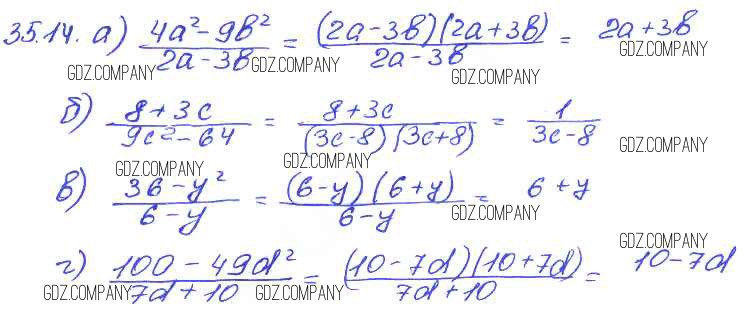 35.14. а) (4a² - 9b²)/(2a - 3b) = ((2a - 3b)(2a + 3b))/(2a - 3b) = 2a + 3b
GDZ.COMPANY GDZ.COMPANY GDZ.COMPANY GDZ.COMPANY
б) (8 + 3c)/(9c² - 64) = (8 + 3c)/((3c - 8)(3c + 8)) = 1/(3c - 8)
GDZ.COMPANY GDZ.COMPANY GDZ.COMPANY
в) (36 - y²)/(6 - y) = ((6 - y)(6 + y))/(6 - y) = 6 + y
GDZ.COMPANY GDZ.COMPANY
г) (100 - 49d²)/(7d + 10) = ((10 - 7d)(10 + 7d))/(7d + 10) = 10 - 7d
GDZ.COMPANY GDZ.COMPANY